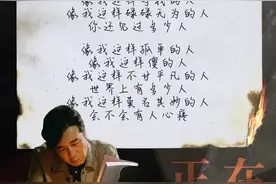 像我这样碌碌无为的人
你还见过多少人
像我这样孤单的人
像我这样傻的人
像我这样不甘平凡的人
世界上有多少人
像我这样莫名其妙的人
会不会有人心疼
正在